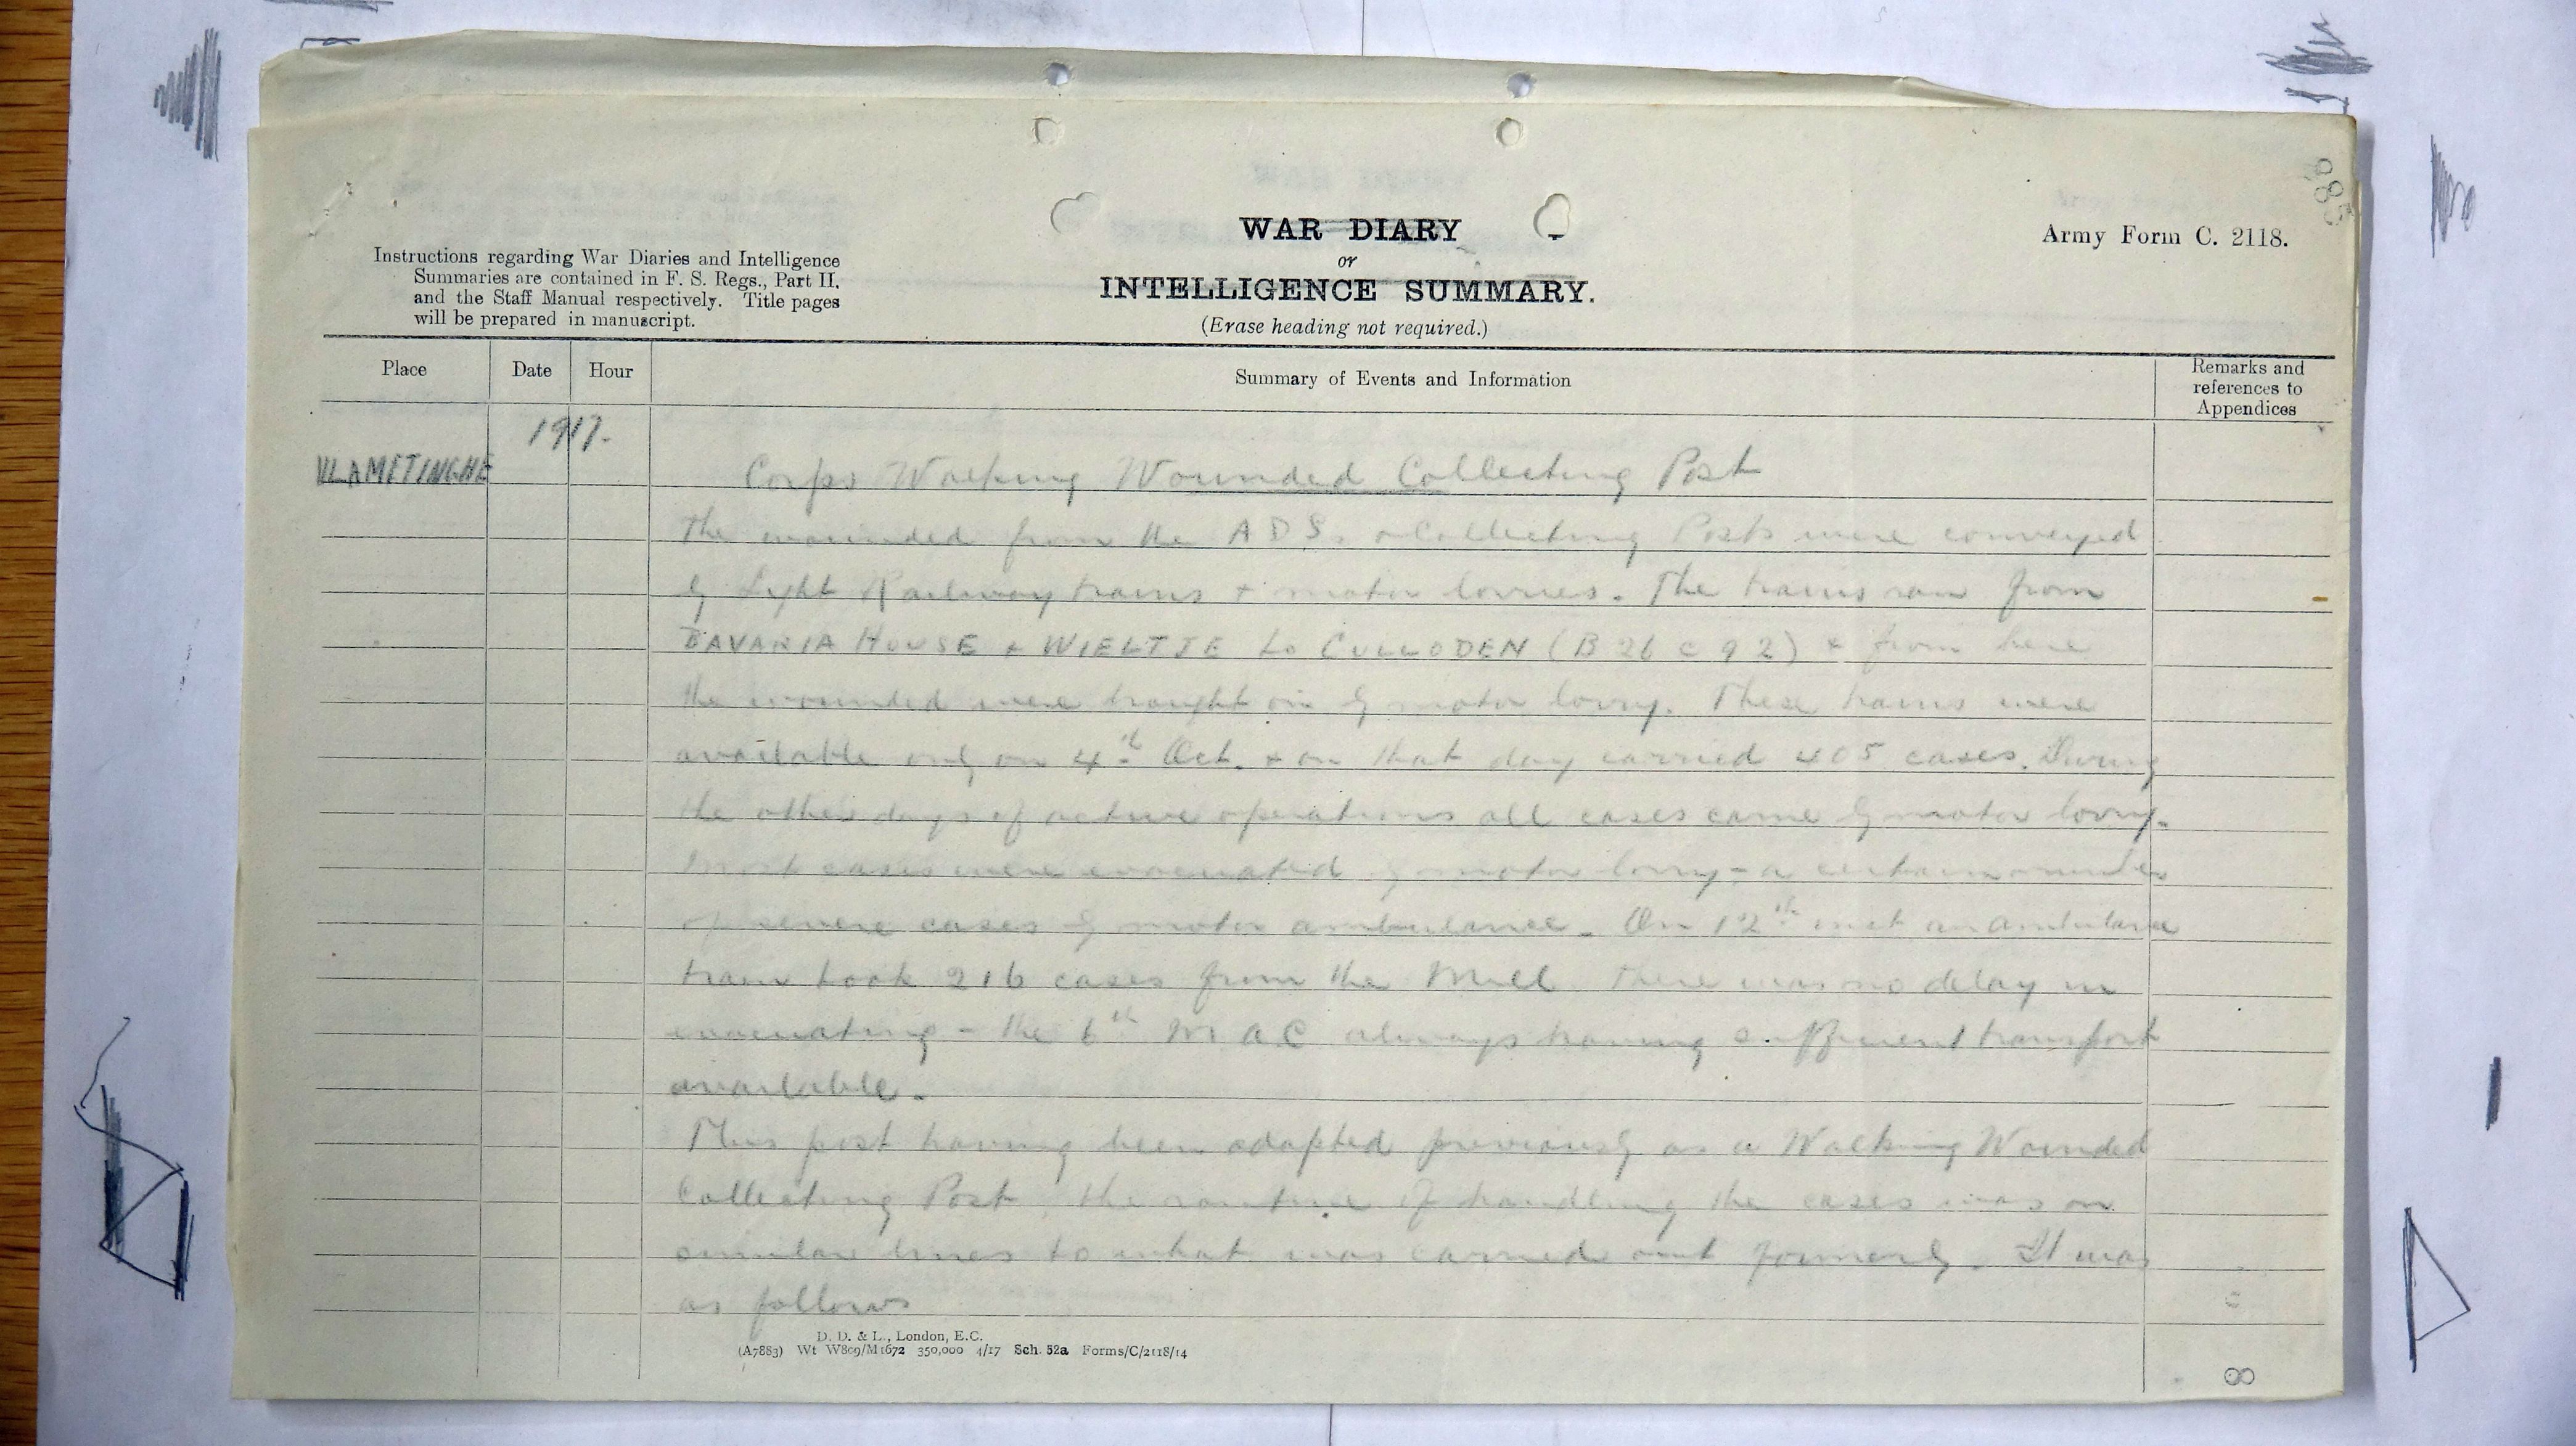 985
WAR DIARY
or
INTELLIGENCE SUMMARY.
(Erase heading not required.)
Army Form C. 2118.
Instructions regarding War Diaries and Intelligence
Summaries are contained in F. S. Regs., Part II.
and the Staff Manual respectively. Title pages
will be prepared in manuscript.
Place
Date
Hour
Summary of Events and Information
Remarks and
references to
Appendices
1917.
VLAMETINGHE
Corps Walking Wounded Collecting Post
The wounded from the A D S. & Collecting Posts were conveyed
by Light Railway trains & motor lorries. The trains ran from
BAVARIA HOUSE & WIELTJE to CULLODEN (B 26 c 9 2) & from here
the wounded were brought in by motor lorry. These trains were
available only on 4th Oct. & on that day carried 405 cases. During
the other days of active operations all cases came by motor lorry.
Most cases were evacuated by motor lorry - a certain number
of severe cases by motor ambulance. On 12th inst an ambulance
train took 216 cases from the Mill There was no delay in
evacuating - the 6th M A C always having sufficient transport
available.
This post having been adapted previously as a Walking Wounded
Collecting Post, the routine of handling the cases was on
similar lines to what was carried out formerly. It was
as follows
D. D. & L., London, E.C.
(A7883) Wt W809/M1672 350,000 4/17 Sch. 52a Forms/C/2118/14
8